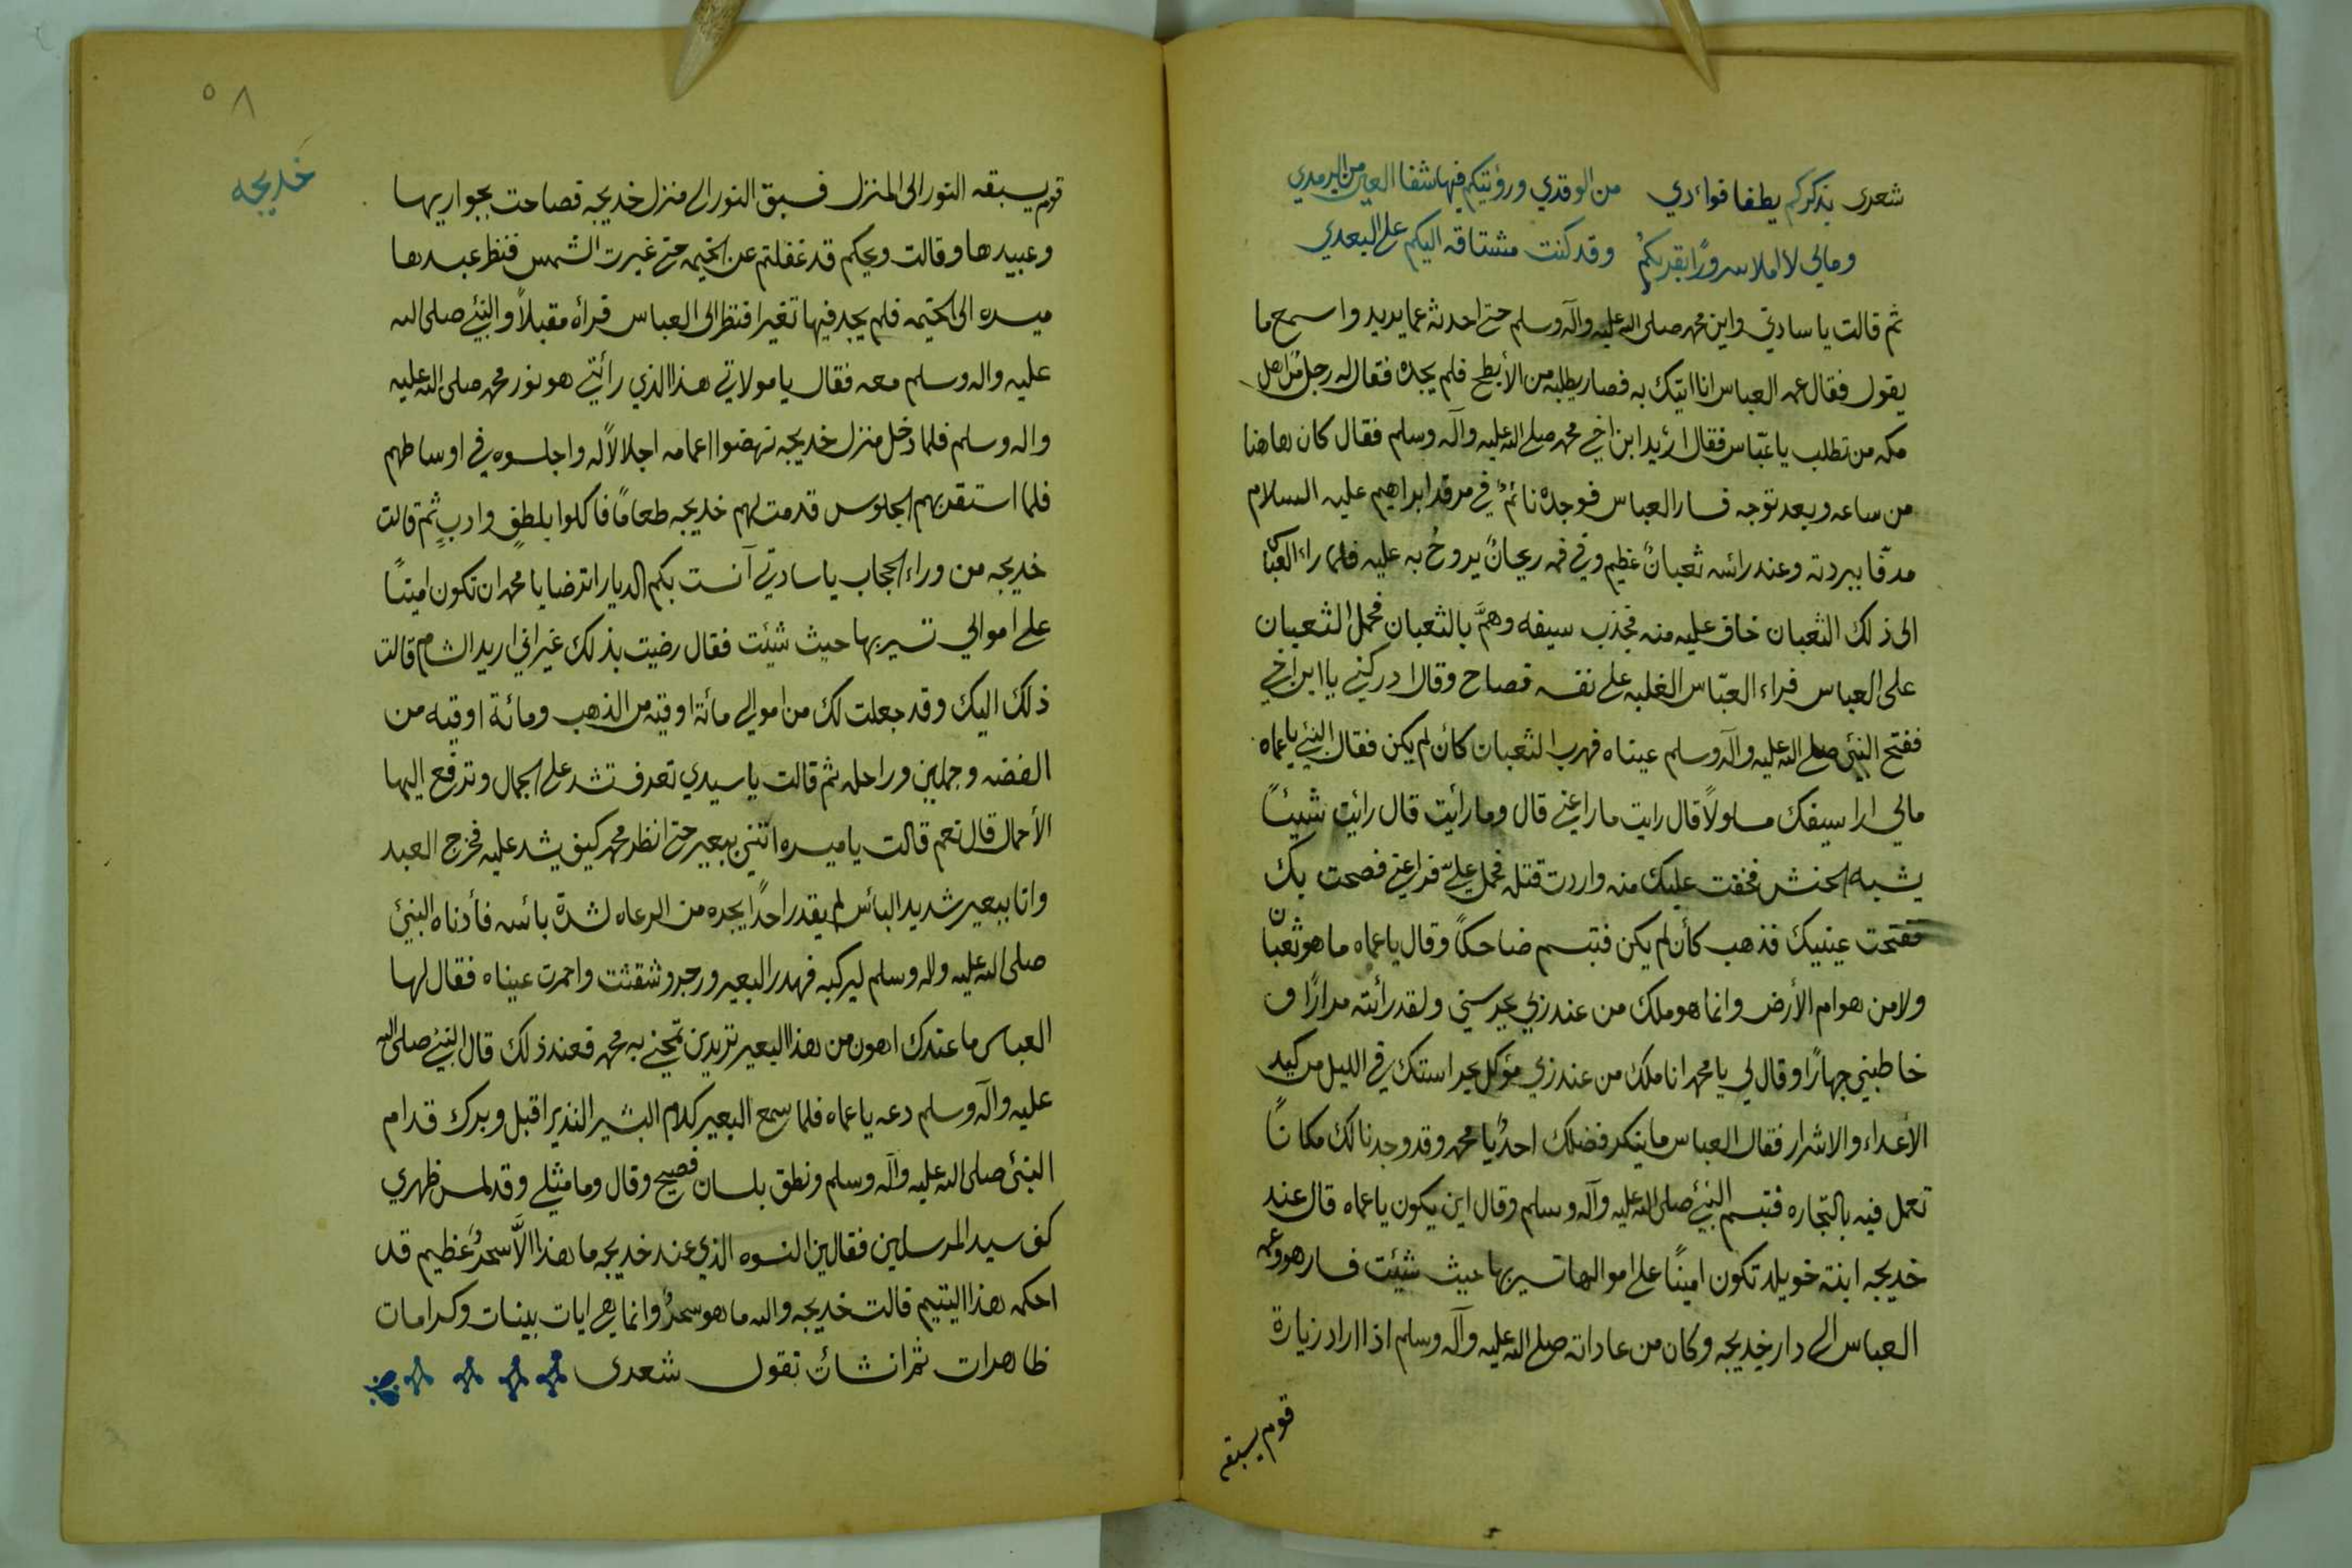 شعرى بذكركم يطفا فواءدي من الوقدي ورؤيتكم فيها شفا العين من الرمدي
ومالي لا املا سرورًا بقربكمُ وقد كنت مشتاقه اليكم على البعدي
ثم قالت يا سادتي واين محمد صلى الله عليه وآله وسلم حتى احدثه عما يريد واسمع ما
يقول فقال عمه العباس انا اتيك به فصار يطلبه من الأبطح فلم يجده فقال له رجل من اهل
مكه من تطلب يا عبّاس فقال اريد ابن اخي محمد صلى الله عليه وآله وسلم فقال كان هاهنا
من ساعه وبعد توجه فسار العباس فوجده نائمٌ في مرقد ابراهيم عليه السلام
مدثّا ببردته وعند رائسه ثعبانٌ عظيم وفي فمه ريحانٌ يروحُ به عليه فلما راء العبّاس
الى ذلك الثعبان خاف عليه منه فجذب سيفه وهمَّ بالثعبان فحمل الثعبان
على العباس فراء العبّاس الغلبه على نفسه فصاح وقال ادركني يا ابن اخي
ففتح النبئ صلى الله عليه وآله وسلم عيناه فهرب الثعبان كائن لم يكن فقال النبي يا عماه
مالي ارا سيفك مسلولاً قال رايت ما راعني قال وما رأيت قال رائيت شيئًا
يشبه الحنش فخفت عليك منه واردت قتله فحمل عليّ فراعني فصحت بك
ففتحت عينيك فذهب كأن لم يكن فتبسم ضاحكًا وقال يا عماه ما هو ثعبان
ولا من هوام الأرض وانما هو ملك من عند ربي يحرسني ولقد رأئته مرارًا و
خاطبني جهارًا وقال لي يا محمد انا ملك من عند ربي مؤكل بحراستك في الليل من كيد
الأعداء والاشرار فقال العباس ما ينكر فضلك احدٌ يا محمد وقد وجدنا لك مكانًا
تعمل فيه بالتجاره فتبسم النبئ صلى الله عليه وآله وسلم وقال اين يكون يا عماه قال عند
خديجه ابنة خويلد تكون امينًا على اموالها تسير بها حيث شيئت فسار هو وعمه
العباس الى دار خديجه وكان من عاداته صلى الله عليه وآله وسلم اذا اراد زيارة
قوم يسبقه
٥٨
خديجه
قوم يسبقه النور الى المنزل فسبق النور الى منزل خديجه فصاحت بجواريها
وعبيدها وقالت ويحكم قد غفلتم عن الخيمه حتى غبرت الشمس فنظر عبدها
ميسره الى الخيمه فلم يجد فيها تغيرا فنظر الى العباس فرأه مقبلاً والنبئ صلى الله
عليه واله وسلم معه فقال يا مولاتي هذا الذي رأئتي هو نور محمد صلى الله عليه
واله وسلم فلما دخل منزل خديجه نهضوا اعمامه اجلالاً له واجلسوه في اوساطهم
فلما استقر بهم الجلوس قدمت لهم خديجه طعامًا فاكلوا بلطفٍ وادبٍ ثم قالت
خديجه من وراء الحجاب يا سادتي آنست بكم الديار اترضا يا محمد ان تكون امينًا
على اموالي تسير بها حيث شيئت فقال رضيت بذلك غير اني اريد الشام قالت
ذلك اليك وقد جعلت لك من اموالي مائة اوقيه من الذهب ومائة اوقيه من
الفضه وجملين وراحله ثم قالت يا سيدي تعرف تشد على الجمال وترفع اليها
الأحمال قال نعم قالت يا ميسره اتني ببعير حتى انظر محمد كيف يشد عليه فخرج العبد
واتا ببعير شديد البأس لم يقدر احدًا يجده من الرعاه لشدة بائسه فأدناه النبئ
صلى الله عليه واله وسلم ليركبه فهدر البعير ورجر وشقثت واحمرت عيناه فقال لها
العباس ما عندك اهون من هذا البعير تريدين تمتحني به محمد فعند ذلك قال النبئ صلى الله
عليه وآله وسلم دعه يا عماه فلما سمع البعير كلام البشير النذير اقبل وبرك قدام
النبئ صلى الله عليه وآله وسلم ونطق بلسان فصيح وقال وما مثلي وقد لمس ظهري
كف سيد المرسلين فقالين النسوه الذي عند خديجه ما هذا الاَّ سحرٌ عظيم قد
احكمه هذا اليتيم قالت خديجه والله ما هو سحرٌ وانما هي ايات بينات وكرامات
ظاهرات ثم انشأت تقول شعرى